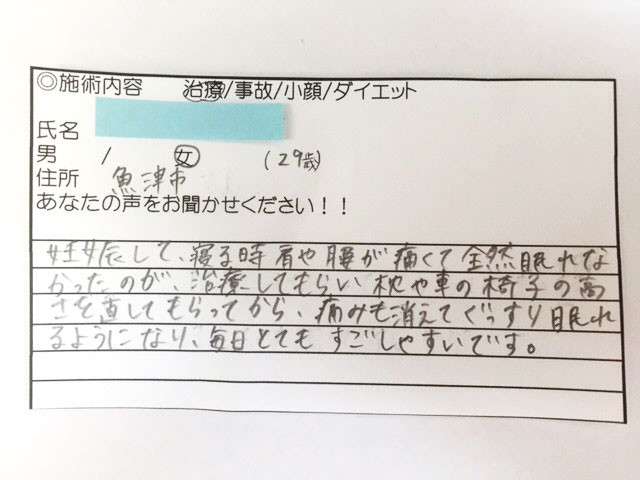 ◎施術内容 治療/事故/小顔/ダイエット
氏名
男 / 女 (29歳)
住所 魚津市
あなたの声をお聞かせください！！
妊娠して、寝る時肩や腰が痛くて全然眠れな
かったのが、治療してもらい枕や車の椅子の高
さを直してもらってから、痛みも消えてぐっすり眠れ
るようになり、毎日とてもすごしやすいです。